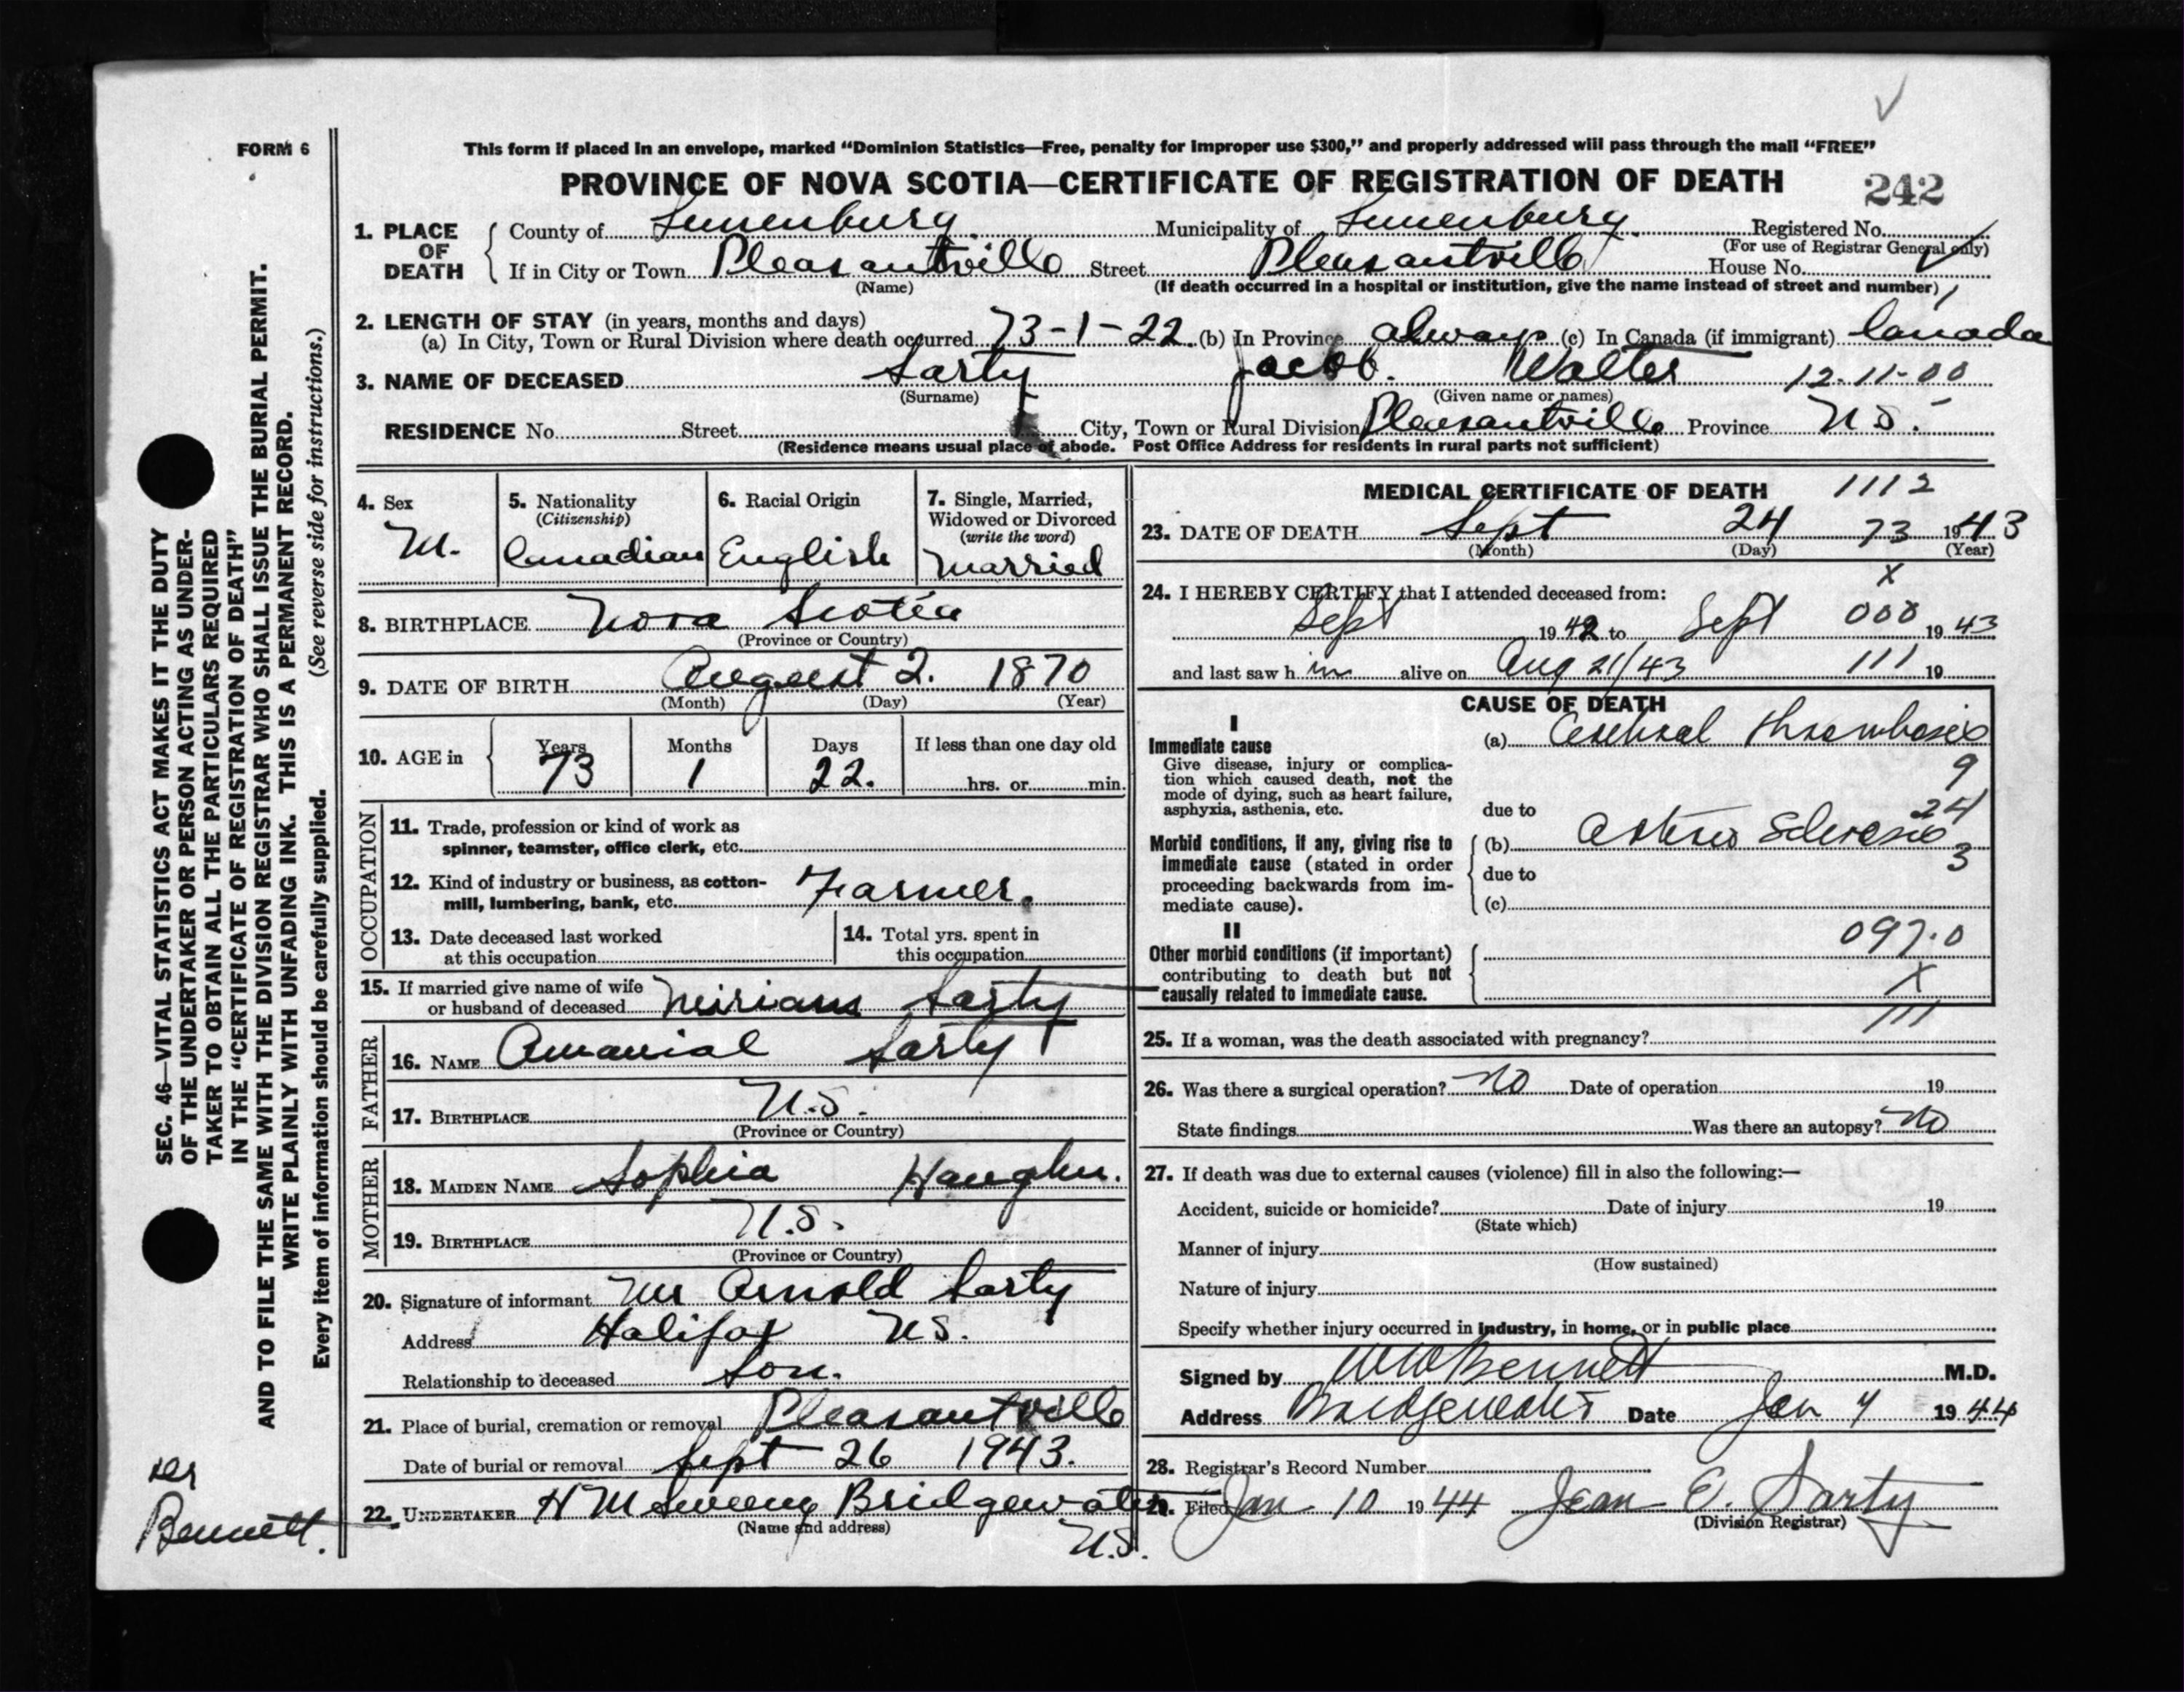 FORM 6
This form if placed in an envelope, marked “Dominion Statistics—Free, penalty for improper use $300,” and properly addressed will pass through the mail “FREE”
PROVINCE OF NOVA SCOTIA—CERTIFICATE OF REGISTRATION OF DEATH
242
1. PLACE OF DEATH
County of Lunenburg. Municipality of Lunenburg. Registered No.
(For use of Registrar General only)
If in City or Town Pleasantville Street Pleasantville House No.
(Name) (If death occurred in a hospital or institution, give the name instead of street and number)
2. LENGTH OF STAY (in years, months and days)
(a) In City, Town or Rural Division where death occurred 73-1-22 (b) In Province always (c) In Canada (if immigrant) Canada
3. NAME OF DECEASED Sarty Jacob. Walter 12-11-00
(Surname) (Given name or names)
RESIDENCE No. Street City, Town or Rural Division Pleasantville Province N S.
(Residence means usual place of abode. Post Office Address for residents in rural parts not sufficient)
4. Sex
M.
5. Nationality
(Citizenship)
Canadian
6. Racial Origin
English
7. Single, Married,
Widowed or Divorced
(write the word)
Married
8. BIRTHPLACE Nova Scotia
(Province or Country)
9. DATE OF BIRTH August 2. 1870
(Month) (Day) (Year)
10. AGE in
Years Months Days If less than one day old
73 1 22. hrs. or min.
OCCUPATION
11. Trade, profession or kind of work as
spinner, teamster, office clerk, etc.
12. Kind of industry or business, as cotton-
mill, lumbering, bank, etc. Farmer.
13. Date deceased last worked
at this occupation
14. Total yrs. spent in
this occupation
15. If married give name of wife
or husband of deceased Miriam Sarty
FATHER
16. NAME Amanial Sarty
17. BIRTHPLACE N.S.
(Province or Country)
MOTHER
18. MAIDEN NAME Sophia
19. BIRTHPLACE N.S.
(Province or Country)
20. Signature of informant Mr Arnold Sarty
Address Halifax NS.
Relationship to deceased Son.
21. Place of burial, cremation or removal Pleasantville
Date of burial or removal Sept 26 1943.
22. UNDERTAKER H M Sweeny Bridgewater
(Name and address)
N.S.
MEDICAL CERTIFICATE OF DEATH 1112
23. DATE OF DEATH Sept 24 73 1943
(Month) (Day) (Year)
X
24. I HEREBY CERTIFY that I attended deceased from:
Sept 1942 to Sept 000 1943
and last saw him alive on Aug 21/43 111 19
CAUSE OF DEATH
I
Immediate cause
Give disease, injury or complica-
tion which caused death, not the
mode of dying, such as heart failure,
asphyxia, asthenia, etc.
(a) Cerebral thrombosis
9
due to
24
Morbid conditions, if any, giving rise to
immediate cause (stated in order
proceeding backwards from im-
mediate cause).
(b) Arterio Sclerosis
3
due to
(c)
II
Other morbid conditions (if important)
contributing to death but not
causally related to immediate cause.
097.0
X
111
25. If a woman, was the death associated with pregnancy?
26. Was there a surgical operation? No Date of operation 19
State findings Was there an autopsy? No
27. If death was due to external causes (violence) fill in also the following:—
Accident, suicide or homicide? Date of injury 19
(State which)
Manner of injury
(How sustained)
Nature of injury
Specify whether injury occurred in industry, in home, or in public place
Signed by W W Bennett M.D.
Address Bridgewater Date Jan 4 1944
28. Registrar's Record Number
29. Filed Jan 10 1944 Jean E. Sarty
(Division Registrar)
SEC. 46—VITAL STATISTICS ACT MAKES IT THE DUTY
OF THE UNDERTAKER OR PERSON ACTING AS UNDER-
TAKER TO OBTAIN ALL THE PARTICULARS REQUIRED
IN THE “CERTIFICATE OF REGISTRATION OF DEATH”
AND TO FILE THE SAME WITH THE DIVISION REGISTRAR WHO SHALL ISSUE THE BURIAL PERMIT.
WRITE PLAINLY WITH UNFADING INK. THIS IS A PERMANENT RECORD.
Every item of information should be carefully supplied. (See reverse side for instructions.)
Bennett.